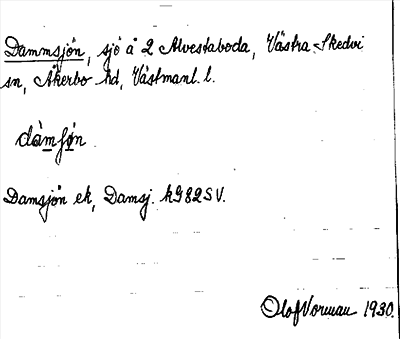 Dammsjön, sjö å 2 Alvestaboda, Västra Skedvi
sn, Åkerbo hd, Västmanl. l.
dàmʃøn
Damsjön ek, Damsj. kG82SV.
Olof Vorman 1930.